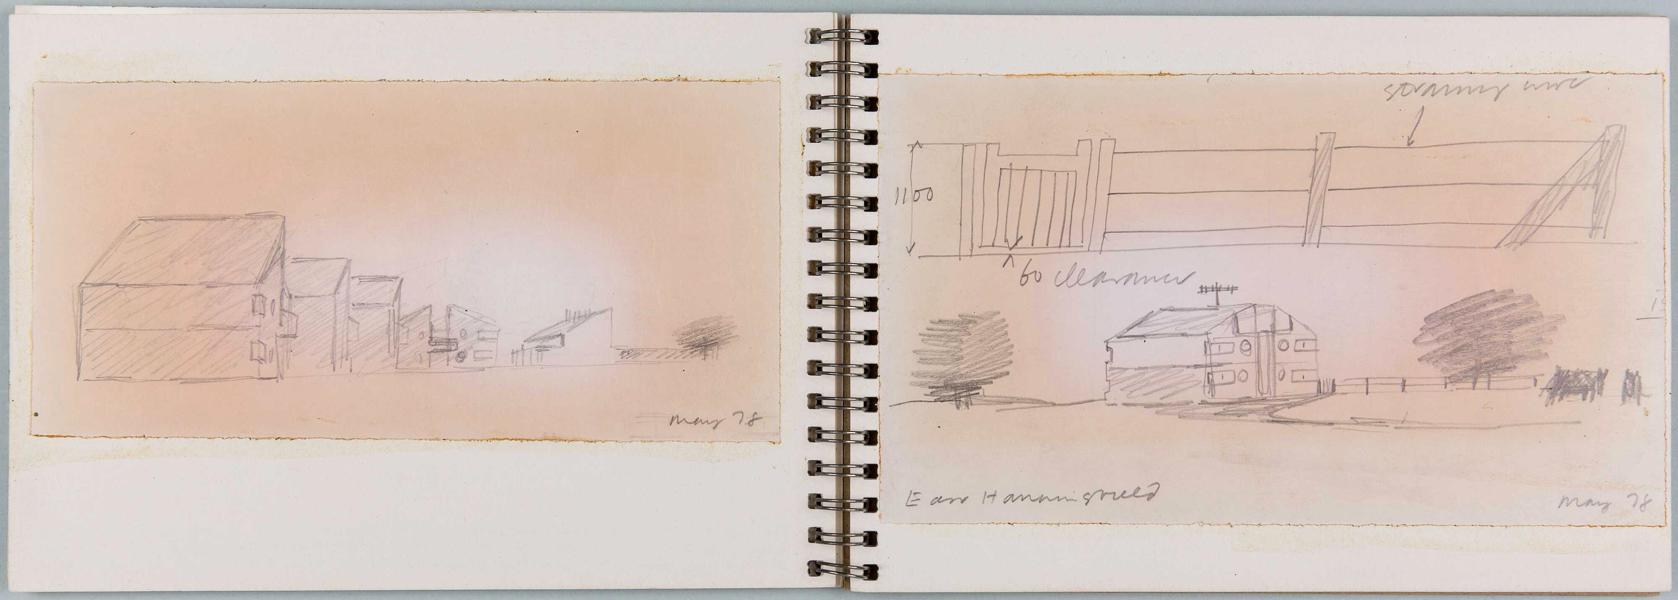 May 78
straining wire
1100
60 clearance
East Hanningfield
May 78